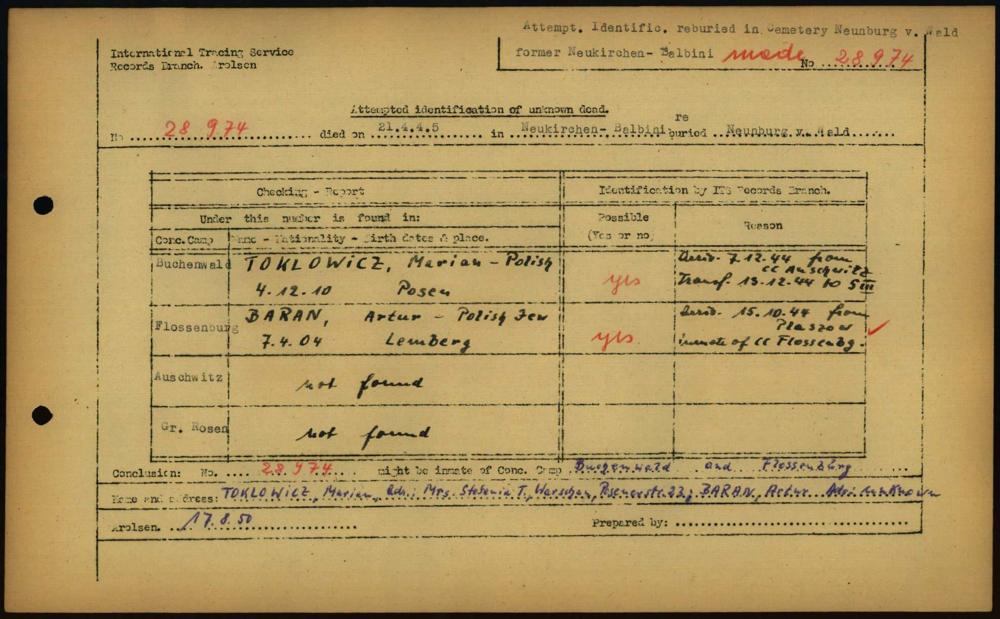 Attempt. Identific. reburied in Cemetery Neunburg v. Wald
former Neukirchen- Balbini made No 28974
International Tracing Service
Records Branch. Arolsen
Attempted identification of unknown dead.
No 28974 died on 21.4.45 in Neukirchen- Balbini reburied Neunburg v. Wald
Checking - Report
Identification by ITS Records Branch.
Under this number is found in:
Possible
(Yes or no)
Reason
Conc.Camp
Name - Nationality - Birth dates & place.
Buchenwald
TOKLOWICZ, Marian - Polish
4.12.10 Posen
yes
7.12.44 from
CC Auschwitz
Transf. 13.12.44 to S III
Flossenburg
BARAN, Artur - Polish Jew
7.4.04 Lemberg
yes
15.10.44 from
Plaszow
inmate of CC Flossenbg.
Auschwitz
not found
Gr. Rosen
not found
Conclusion: No. 28974 might be inmate of Conc. Camp Buchenwald and Flossenbürg
Name and address: TOKLOWICZ, Marian, Adr.: Mrs. Stefania T., Warschau, Posenerstr. 22; BARAN, Artur Adr. unknown
Arolsen. 17.8.50
Prepared by: